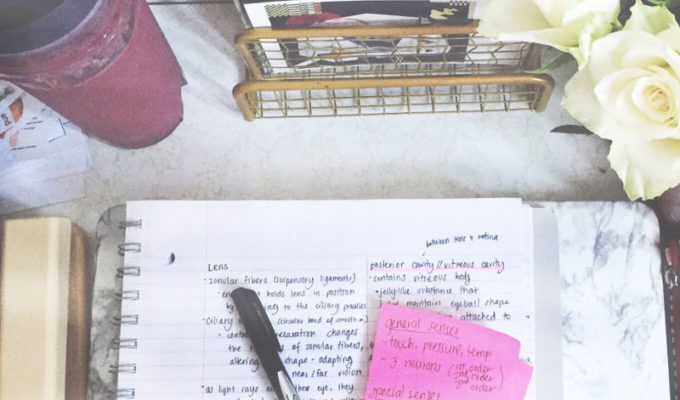 Lens
- zonular fibers (suspensory ligaments)
holds lens in position
by to the ciliary
Ciliary (circular band of smooth m)
- relaxation changes
the of zonular fibers,
altering shape - adapting
near/far vision
* as light rays their eye, they
between lens & retina
posterior cavity // vitreous cavity
- contains vitreous body
- jelly-like substance that
maintain eyeball shape
attached to
general senses
- touch, pressure, temp
- 3 neurons (1st order
2nd order
3rd order)
special senses